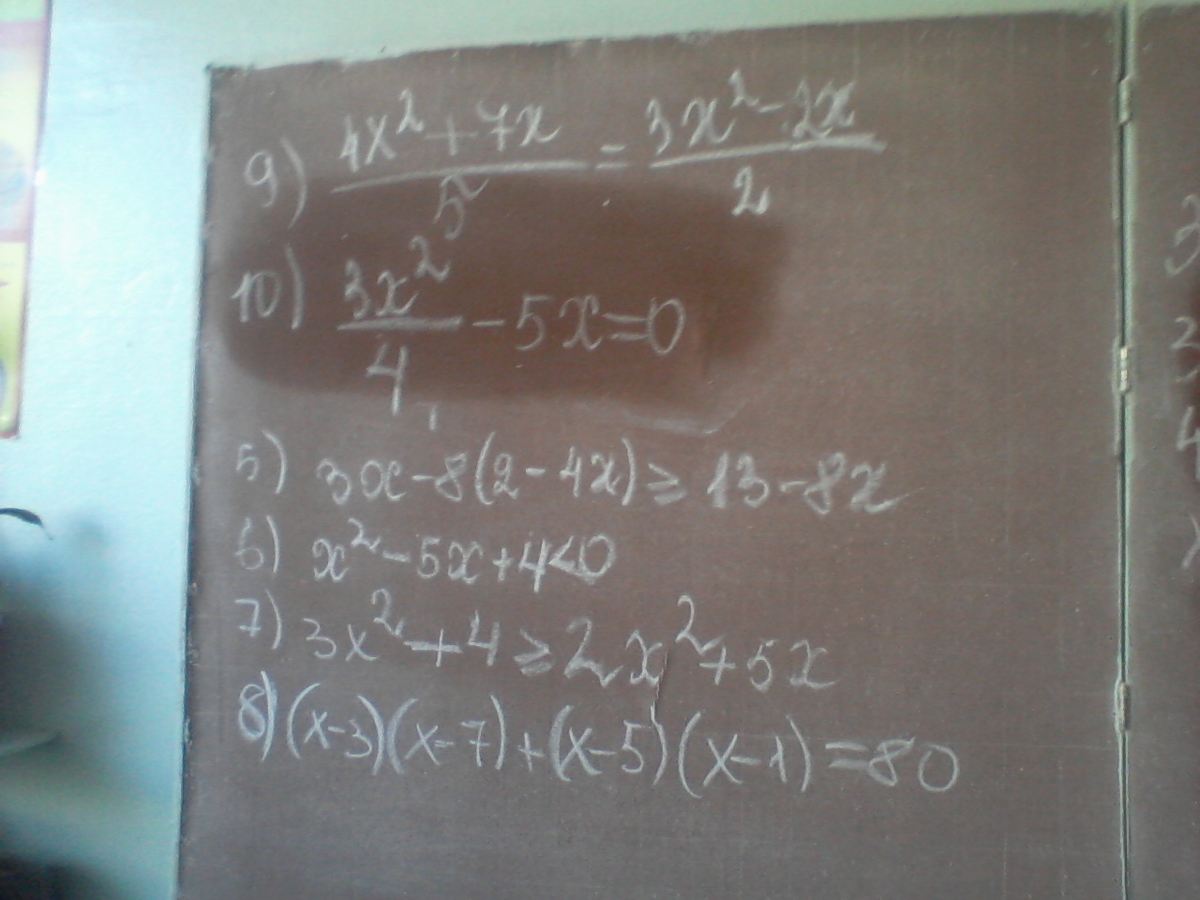 9) (4x² + 7x)/5 = (3x² - 2x)/2
10) 3x²/4 - 5x = 0
5) 3x - 8(2 - 4x) ≥ 13 - 8x
6) x² - 5x + 4 < 0
7) 3x² + 4 ≥ 2x² + 5x
8) (x-3)(x-7) + (x-5)(x-1) = 80